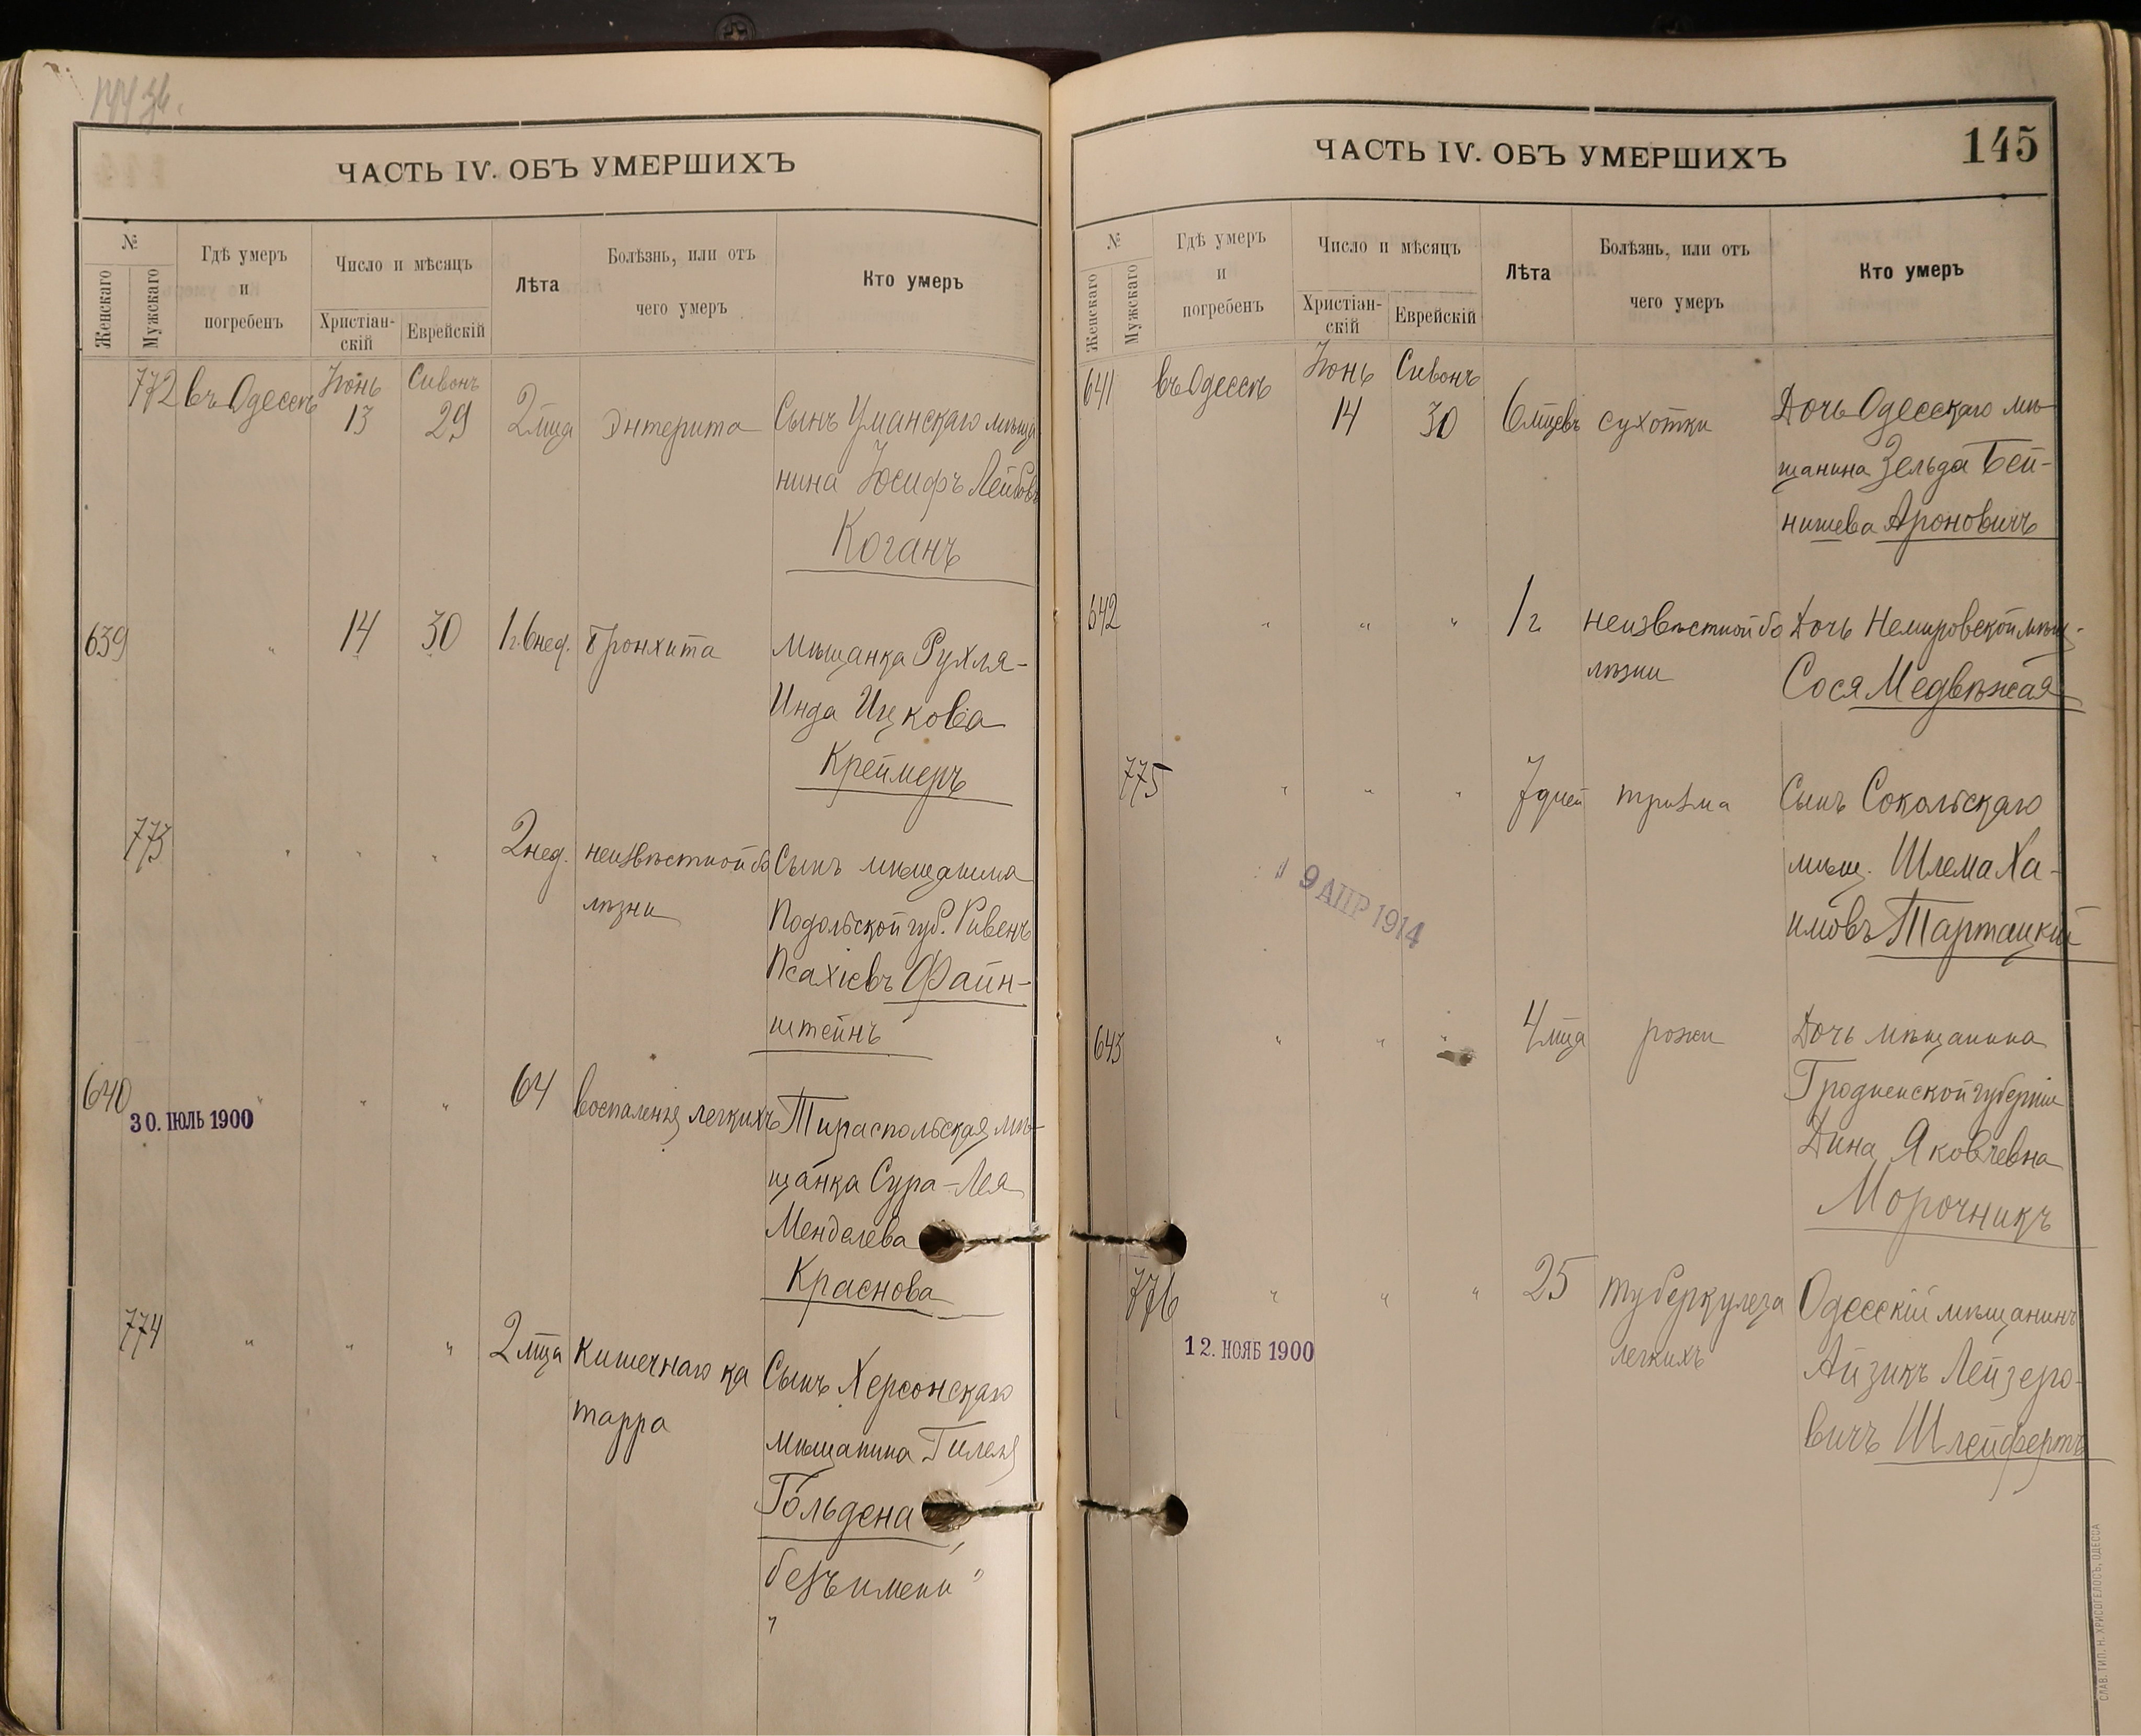 ЧАСТЬ IV. ОБЪ УМЕРШИХЪ
№
Женскаго
Мужскаго
Гдѣ умеръ
и
погребенъ
Число и мѣсяцъ
Христіан-
скій
Еврейскій
Лѣта
Болѣзнь, или отъ
чего умеръ
Кто умеръ
772 въ Одессѣ Іюнь 13 Сивонъ 29 2 мца Энтерита Сынъ Уманскаго мѣща
нина Іосифъ Лейбовъ
Коганъ
639 " 14 30 1 г. 6 нед. Бронхита Мѣщанка Рухля-
Инда Ицкова
Креймеръ
773 " " " 2 нед. неизвѣстной бо Сынъ мѣщанина
лѣзни Подольской губ. Ривенъ
Псахіевъ Файн-
штейнъ
640 " " " 64 воспаленія легкихъ Тираспольская мѣ-
30. ІЮЛЬ 1900
щанка Сура-Лея
Менделева
Краснова
774 " " " 2 мца Кишечнаго ка Сынъ Херсонскаго
тарра мѣщанина Гилеля
Гольдена
"безъ имени"
ЧАСТЬ IV. ОБЪ УМЕРШИХЪ
145
№
Женскаго
Мужскаго
Гдѣ умеръ
и
погребенъ
Число и мѣсяцъ
Христіан-
скій
Еврейскій
Лѣта
Болѣзнь, или отъ
чего умеръ
Кто умеръ
641 въ Одессѣ Іюнь 14 Сивонъ 30 6 мцевъ сухотки Дочь Одесскаго мѣ
щанина Зельда Бей-
нишева Ароновичъ
642 " " " 1 г. неизвѣстной бо Дочь Немировской мѣщ.
лѣзни Сося Медвѣжая
775 " " " 7 дней тризма Сынъ Сокольскаго
мѣщ. Шлема Ха-
имовъ Тартацкій
9 АПР 1914
643 " " " 4 мца рожи Дочь мѣщанина
Гродненской губерніи
Дина Яковлевна
Морочникъ
776 " " " 25 туберкулеза Одесскій мѣщанинъ
12. НОЯБ 1900
легкихъ Айзикъ Лейзеро-
вичъ Шлейфертъ
СЛАВ. ТИП. Н. ХРИСОГЕЛОСЪ, ОДЕССА